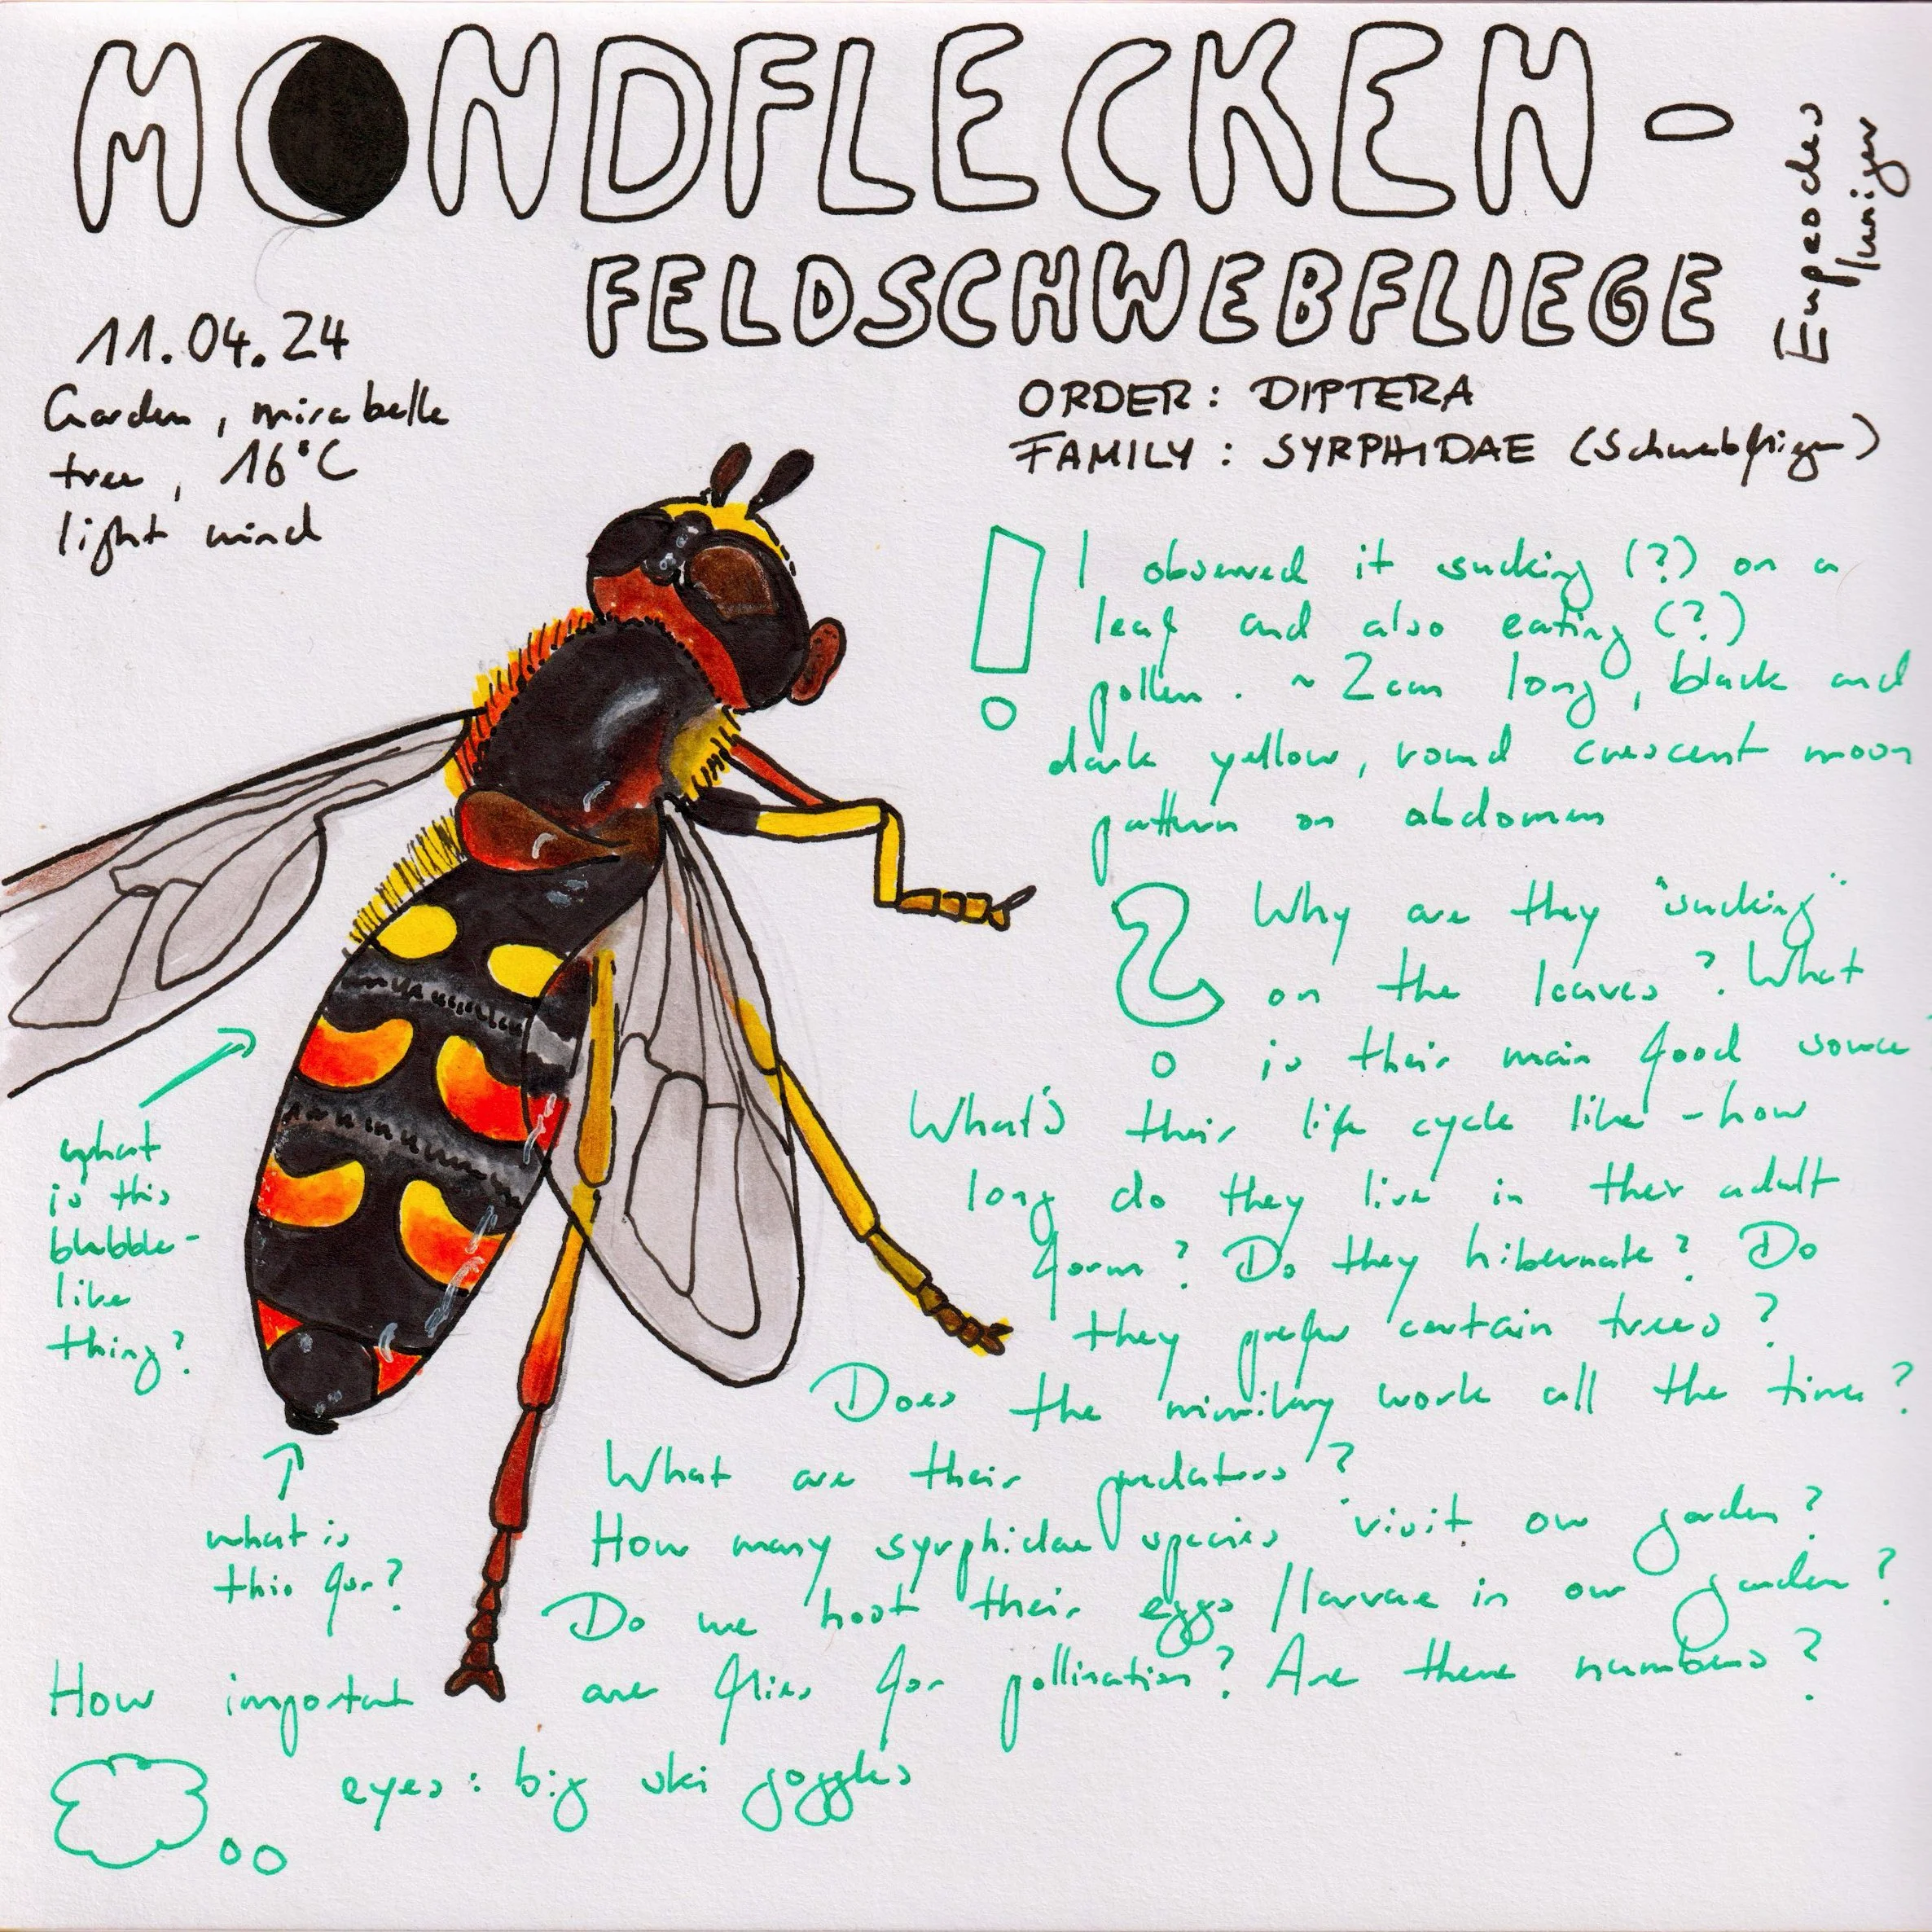 MONDFLECKEN-
FELDSCHWEBFLIEGE
Eupeodes
luniger
11.04.24
Garden, mirabelle
tree, 16°C
light wind
ORDER: DIPTERA
FAMILY: SYRPHIDAE (Schwebfliegen)
! I observed it sucking (?) on a
leaf and also eating (?)
pollen. ~ 2cm long, black and
dark yellow, round crescent moon
pattern on abdomen
? Why are they "sucking"
on the leaves? What
is their main food source
What's their life cycle like - how
long do they live in their adult
form? Do they hibernate? Do
they prefer certain trees?
Does the mimikry work all the time?
What are their predators?
How many syrphidae species visit our garden?
Do we host their eggs/larvae in our garden?
How important are flies for pollination? Are there numbers?
what
is this
blubble-
like
thing?
what is
this for?
eyes: big ski goggles